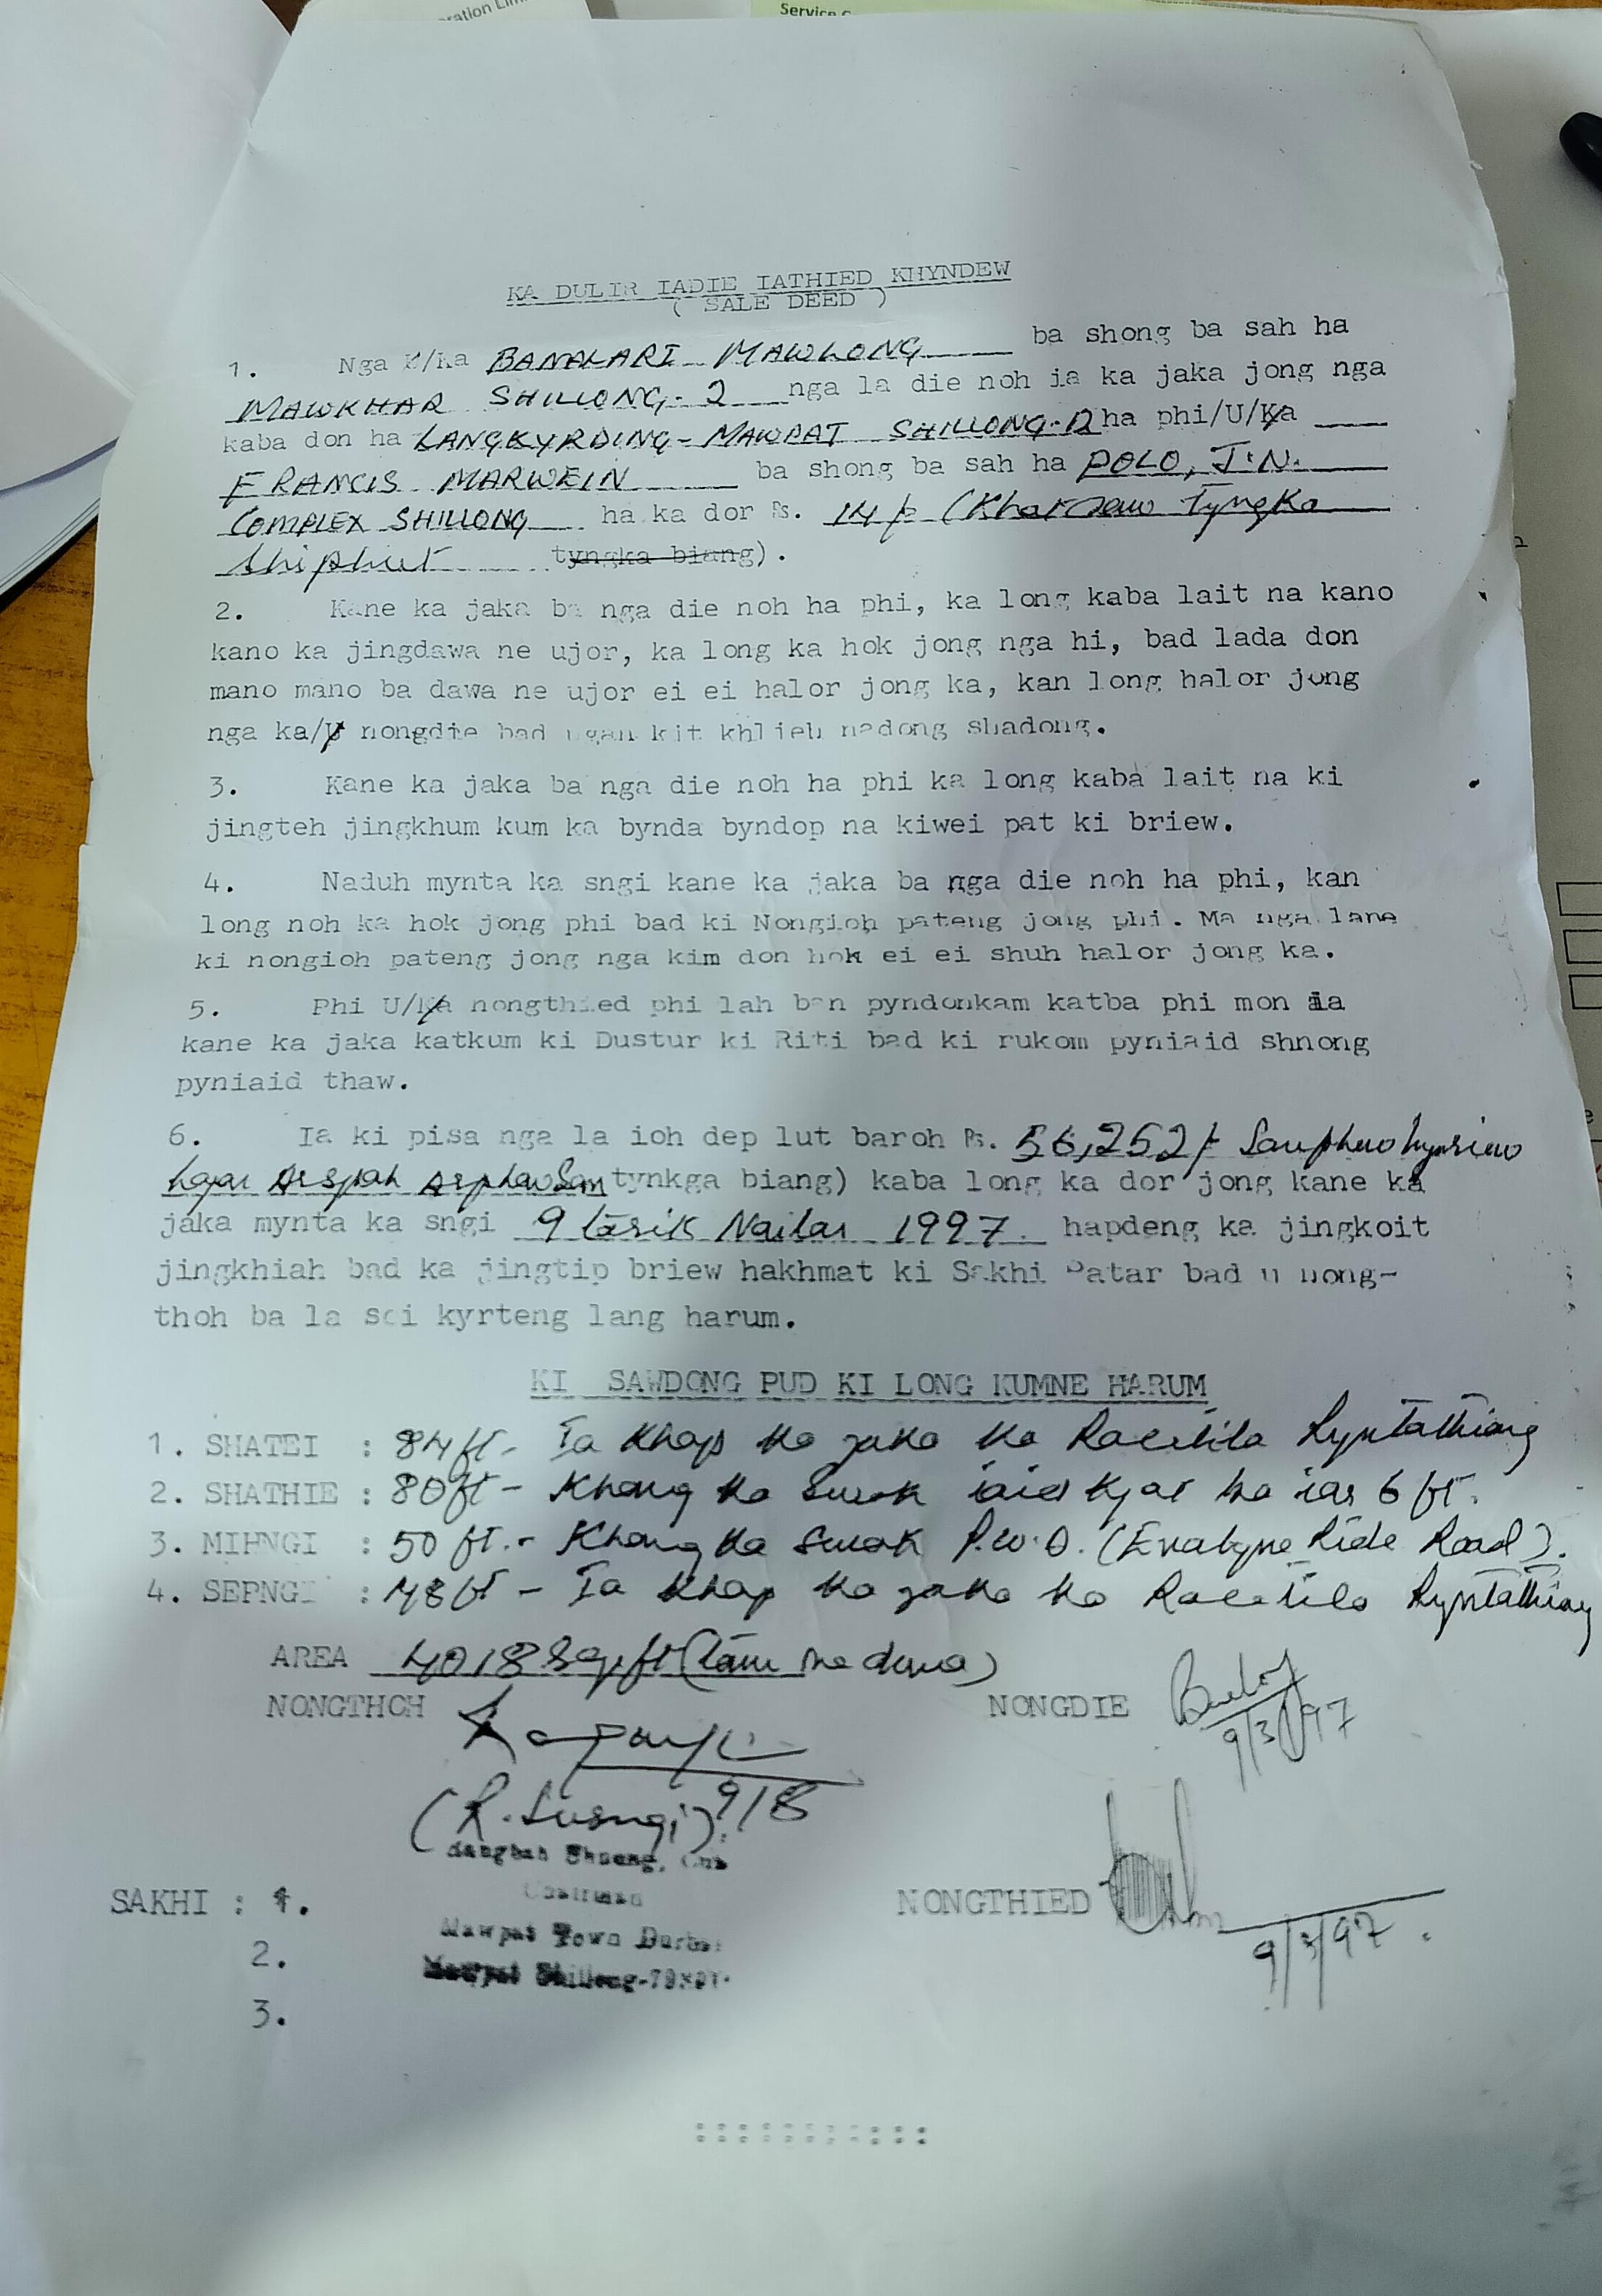 Service
KA DULIR IADIE IATHIED KHYNDEW
( SALE DEED )
1. Nga U/Ka BANALARI MAWLONG ba shong ba sah ha
MAWKHAR SHILLONG-2 nga la die noh ia ka jaka jong nga
kaba don ha LANGKYRDING-MAWPAT SHILLONG-12 ha phi/U/Ka
FRANCIS MARWEIN ba shong ba sah ha POLO, J.N.
COMPLEX SHILLONG ha ka dor Rs. 14/- (Khatsaw Tyngka
Shiphut tyngka biang).
2. Kane ka jaka ba nga die noh ha phi, ka long kaba lait na kano
kano ka jingdawa ne ujor, ka long ka hok jong nga hi, bad lada don
mano mano ba dawa ne ujor ei ei halor jong ka, kan long halor jong
nga ka/U nongdie bad ngan kit khlieh nadong shadong.
3. Kane ka jaka ba nga die noh ha phi ka long kaba lait na ki
jingteh jingkhum kum ka bynda byndop na kiwei pat ki briew.
4. Naduh mynta ka sngi kane ka jaka ba nga die noh ha phi, kan
long noh ka hok jong phi bad ki Nongioh pateng jong phi. Ma nga lane
ki nongioh pateng jong nga kim don hok ei ei shuh halor jong ka.
5. Phi U/Ka nongthied phi lah ban pyndonkam katba phi mon ia
kane ka jaka katkum ki Dustur ki Riti bad ki rukom pyniaid shnong
pyniaid thaw.
6. Ia ki pisa nga la ioh dep lut baroh Rs. 56,252/- Sanphew hynriew
hajar Arspah Arphew San tynkga biang) kaba long ka dor jong kane ka
jaka mynta ka sngi 9 tarik Nailar 1997. hapdeng ka jingkoit
jingkhiah bad ka jingtip briew hakhmat ki Sakhi Patar bad u nong-
thoh ba la soi kyrteng lang harum.
KI SAWDONG PUD KI LONG KUMNE HARUM
1. SHATEI : 84ft- Ia Khap ka jaka ka Raletila Ryntathiang
2. SHATHIE : 80ft - Khang ka surok iaid kjat ba iar 6 ft.
3. MIHNGI : 50 ft. - Khang ka surok P.W.D. (Evalyne Ride Road).
4. SEPNGI : 48ft - Ia Khap ka jaka ka Raletila Ryntathiang
AREA 4018 Sqft (tam ne duna)
NONGTHOH
NONGDIE
9/3/97
(R. Lusngi) 9/8
Rangbah Shnong, Cum
Chairman
SAKHI : 1.
NONGTHIED
Mawpat Town Durbar
9/3/97.
2.
Mawpat Shillong-
3.